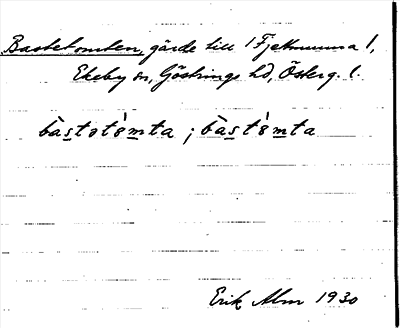 Bastetomten, gärde till 1 Fjettmunna 1,
Ekeby sn, Göstrings hd, Österg. l.
bàstat8̀mta ; bàst8̀mta
Erik Alm 1930